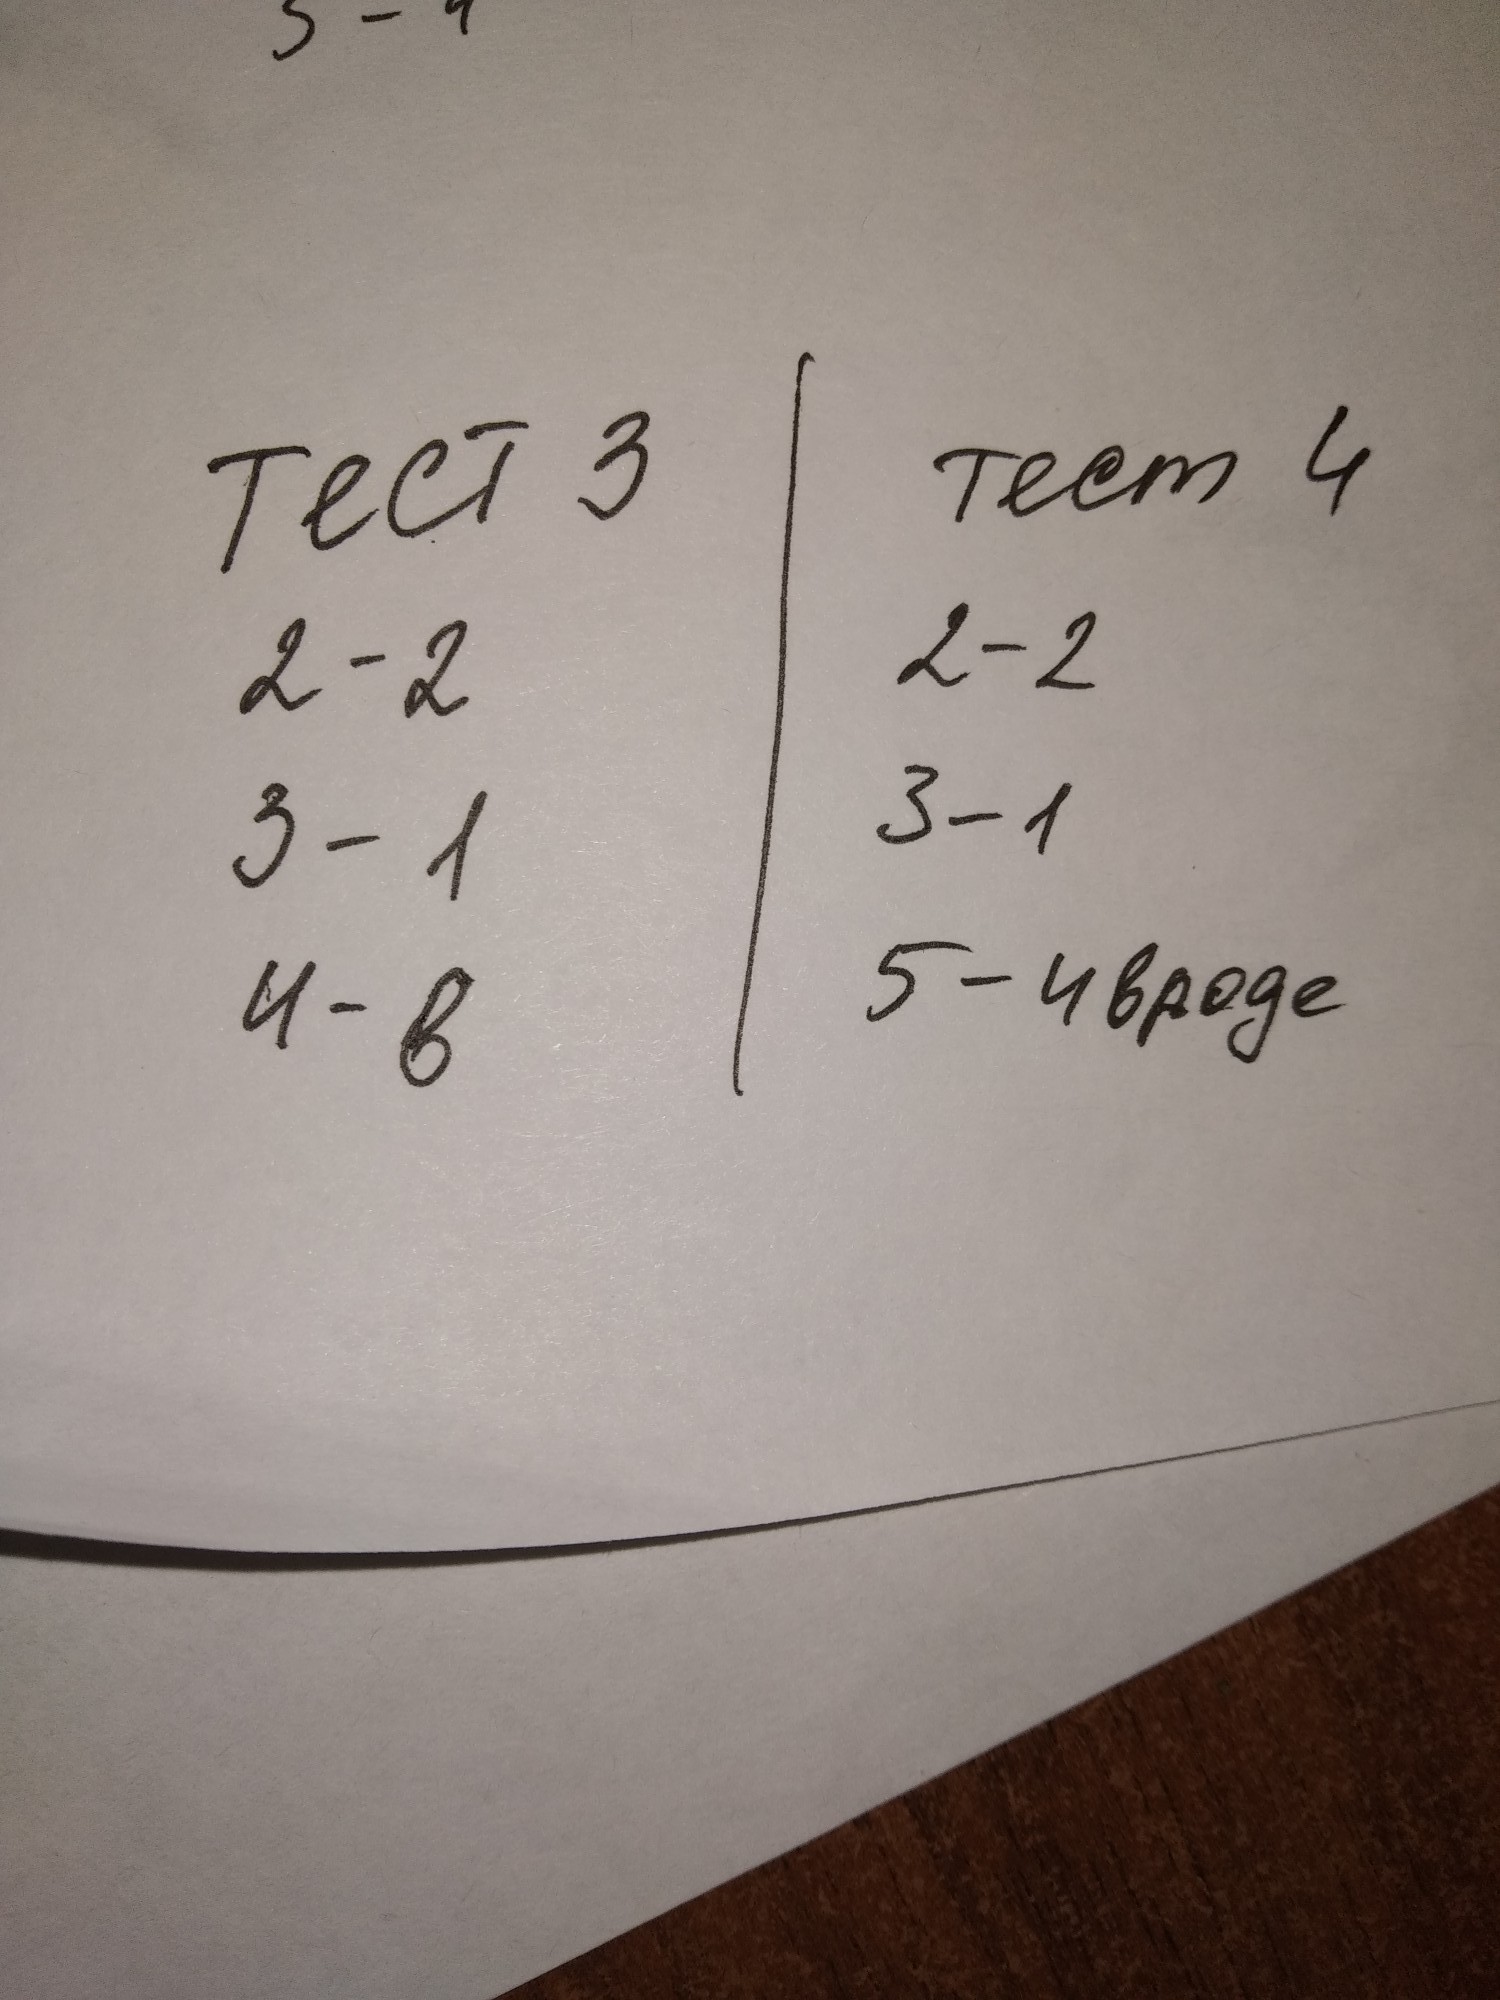 Тест 3
2 - 2
3 - 1
4 - в
тест 4
2 - 2
3 - 1
5 - 4 вроде